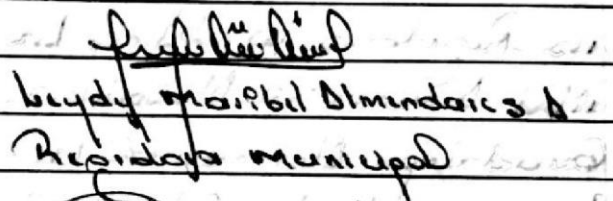 Leydy Maribel Almendares A
Regidora Municipal